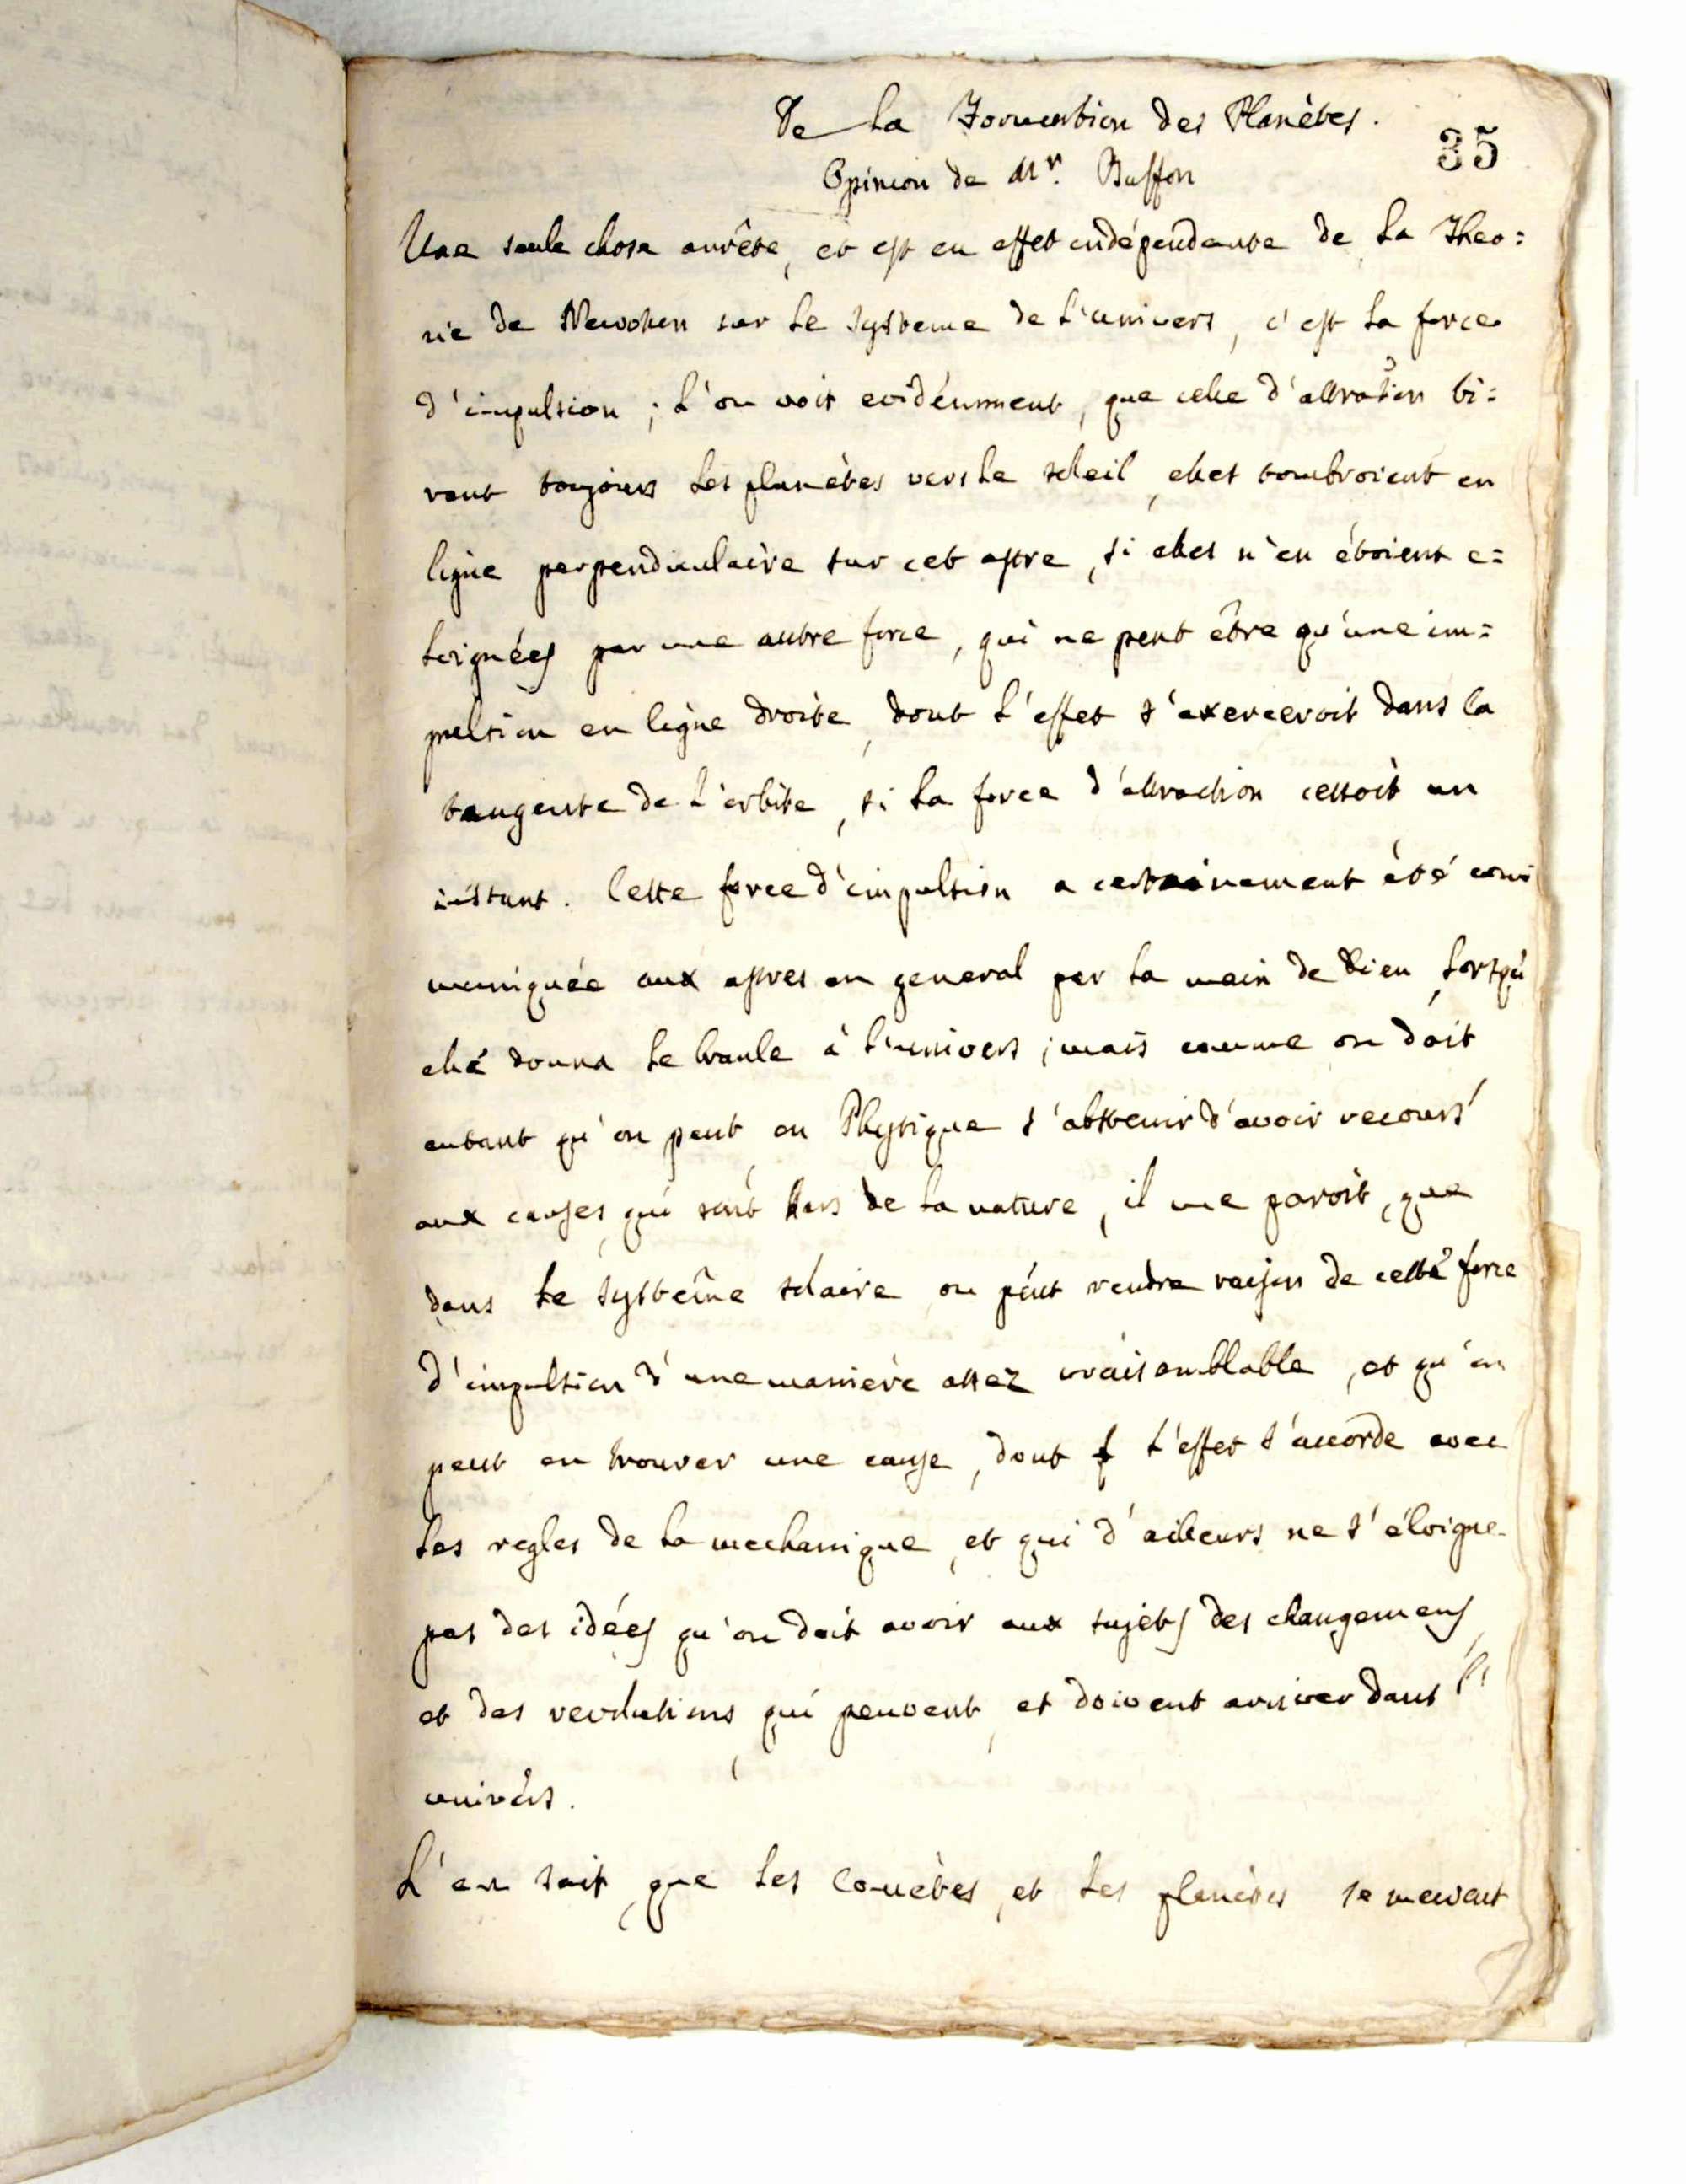 De la Formation des Planètes.
35
Opinion de Mr. Buffon
Une seule chose arrête, et est en effet indépendente de la Theo=
rie de Newoton sur le systeme de l'univers, c'est la force
d'impulsion ; l'on voit evidémment, que celle d'attration ti=
rant toujours les planètes vers le soleil, elles tombroient en
ligne perpendiculaire sur cet astre, si elles n'en étoient e=
loignées par une autre force, qui ne peut être qu'une im=
pulsion en ligne droite, dont l'effet s'exerceroit dans la
tangente de l'orbite, si la force d'attraction cessoit un
instant. Cette force d'impulsion a certainement été com
muniquée aux astres en general par la main de Dieu, lorsqu'
elle donna le branle à l'univers ; mais comme on doit
autant qu'on peut, en Physique s'abstenir d'avoir recours
aux causes, qui sont hors de la nature, il me paroit, que
dans le systême solaire on peut rendre raison de cette force
d'impulsion d'une manière assez vraisemblable, et qu'on
peut en trouver une cause, dont l'effet s'accorde avec
les regles de la mechanique, et qui d'ailleurs ne s'éloigne
pas des idées qu'on doit avoir aux sujets des changemens,
et des revolutions, qui peuvent, et doivent arriver dans l'
univers.
L'on sait, que les Comètes, et les planètes se meuvent